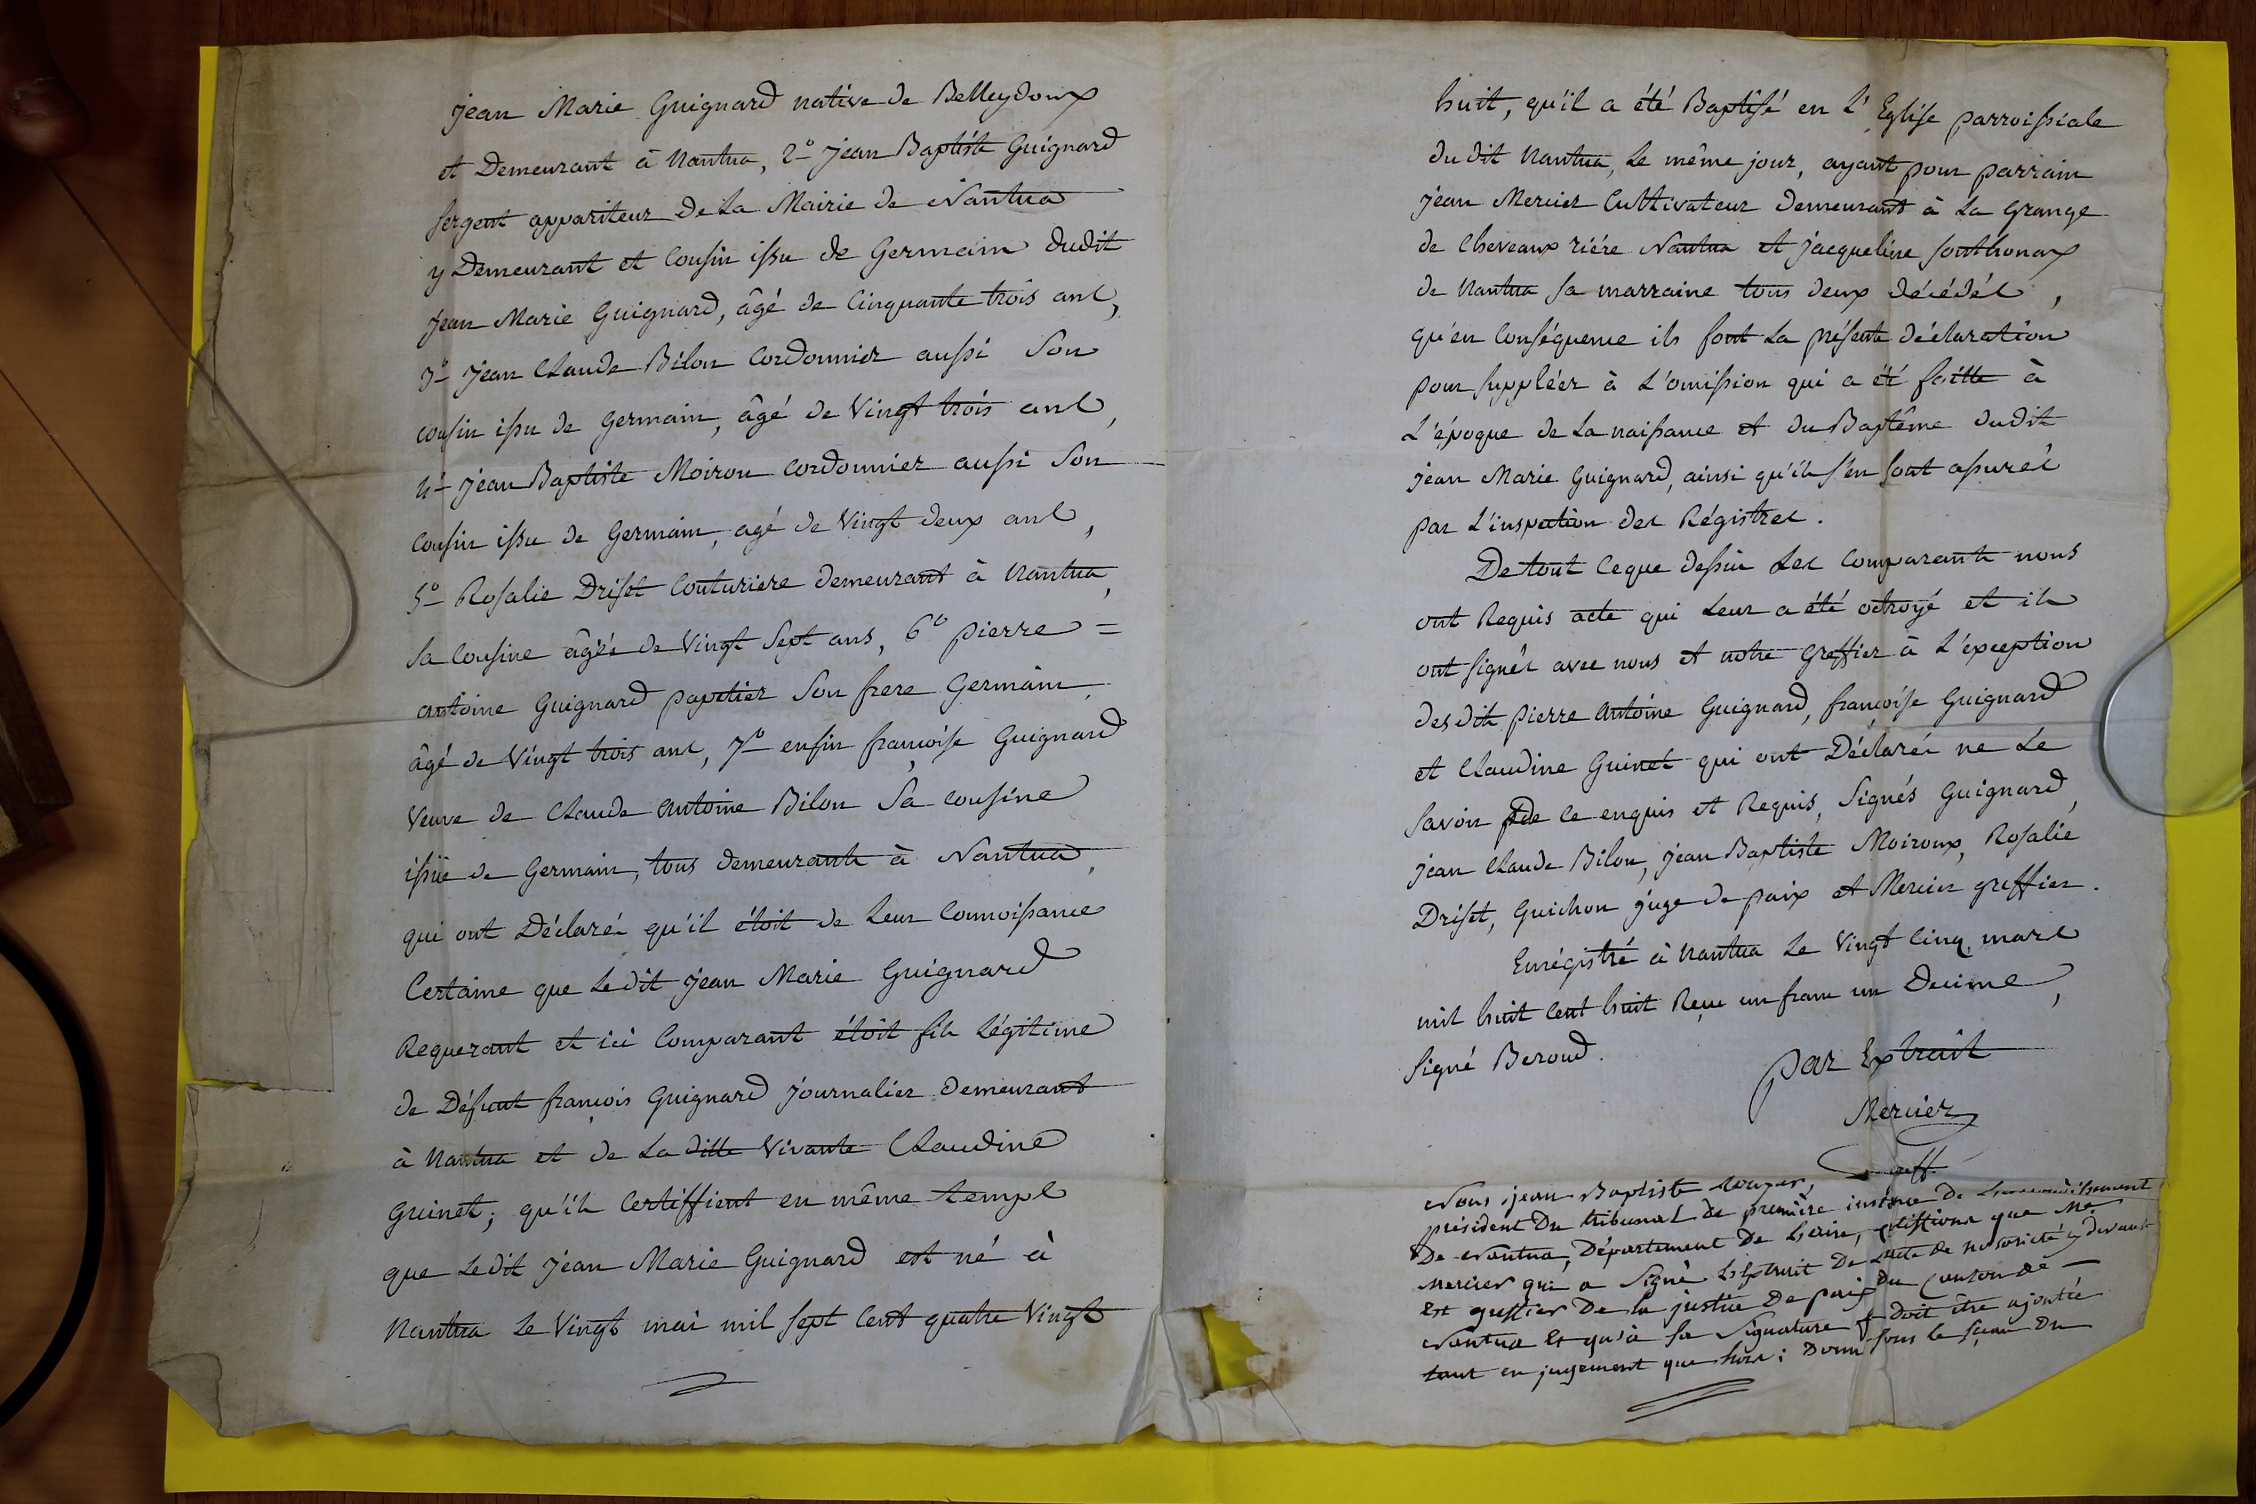 jean Marie Guignard native de Belleydoux
et Demeurant à Nantua, 2º jean Baptiste Guignard
sergent appariteur de La Mairie de Nantua
y Demeurant et Cousin issu de Germain dudit
jean Marie Guignard, âgé de Cinquante trois ans,
3º jean Claude Bilon Cordonnier aussi Son
cousin issu de Germain, âgé de Vingt trois ans,
4º jean Baptiste Moirou Cordonnier aussi Son
Cousin issu de Germain, agé de Vingt deux ans,
5º Rosalie Driset Couturiere demeurant à Nantua,
sa Cousine âgée de Vingt Sept ans, 6º pierre =
antoine Guignard papetier Son frere Germain,
âgé de Vingt trois ans, 7º enfin françoise Guignard
Veuve de Claude antoine Bilon Sa cousine
issüe de Germain, tous demeurants à Nantua,
qui ont Déclarés qu'il étoit de Leur Connoissance
Certaine que Ledit jean Marie Guignard
Requerant et ici Comparant étoit fils Légitime
de Défunt françois Guignard journalier demeurant
à Nantua et de La ditte Vivante Claudine
Guinet; qu'ils Certiffient en même temps
que Ledit jean Marie Guignard est né à
Nantua Le Vingt mai mil sept Cent quatre Vingt
huit, qu'il a été Baptisé en L'Eglise parroissiale
du dit Nantua, Le même jour, ayant pour parrain
jean Mercier Cultivateur demeurant à La Grange
de Cheveaux riére Nantua et jacqueline Sonthonax
de Nantua sa marraine tous deux décédés,
qu'en Conséquence ils font La présente déclaration
pour suppléer à L'omission qui a été faitte à
L'époque de La naissance et du Baptême dudit
jean Marie Guignard, ainsi qu'ils s'en sont assurés
par L'inspection des Régistres.
De tout Ceque dessus Les Comparants nous
ont Requis acte qui Leur a été octroyé et ils
ont signés avec nous et notre Greffier à L'exception
desdits pierre antoine Guignard, françoise Guignard
et Claudine Guinet qui ont Déclarés ne Le
Savoir de ce enquis et Requis, Signés Guignard,
jean Claude Bilon, jean Baptiste Moiroux, Rosalie
Driset, Guichon juge de paix et Mercier greffier.
Enrégistré à Nantua Le Vingt Cinq mars
mil huit Cent huit Reçu un franc un Decime,
Signé Beroud.
par Extrait
Mercier
greff.
Nous jean Baptiste
président Du tribunal de première instance de L'arrondissement
De Nantua, Département De L'ain, certiffions que Me
Mercier qui a Signé L'Extrait De L'acte de notoriété cy devant
Est greffier De la justice De paix Du Canton de
Nantua Et qu'à sa Signature foi Doit être ajoutée
tant en jugement que hors; Donné sous le sceau Du